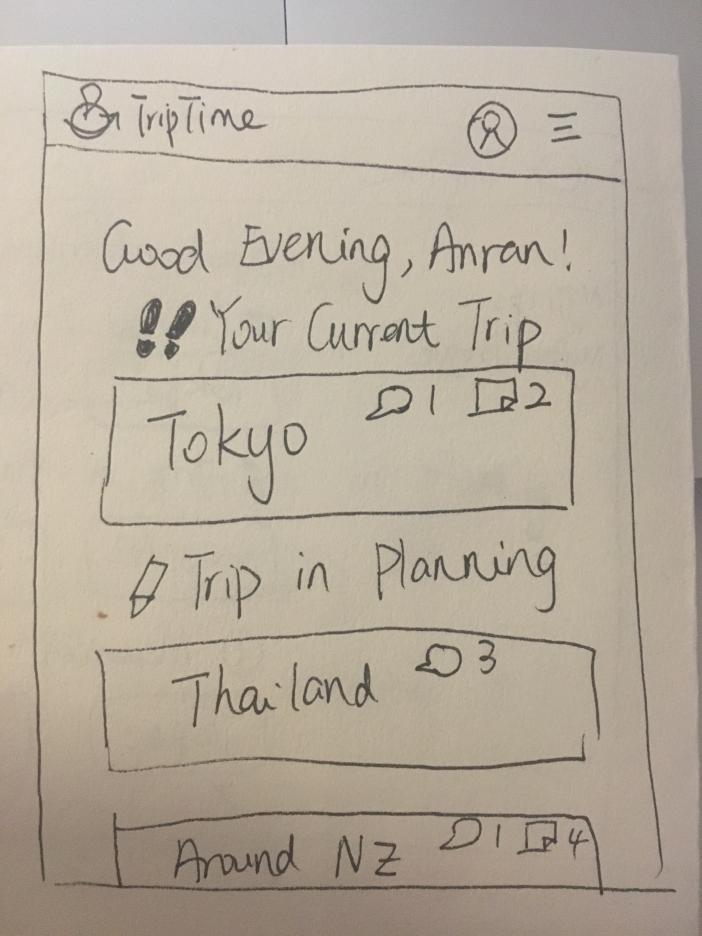 TripTime
Good Evening, Anran!
Your Current Trip
Tokyo 1 2
Trip in Planning
Thailand 3
Around NZ 1 4